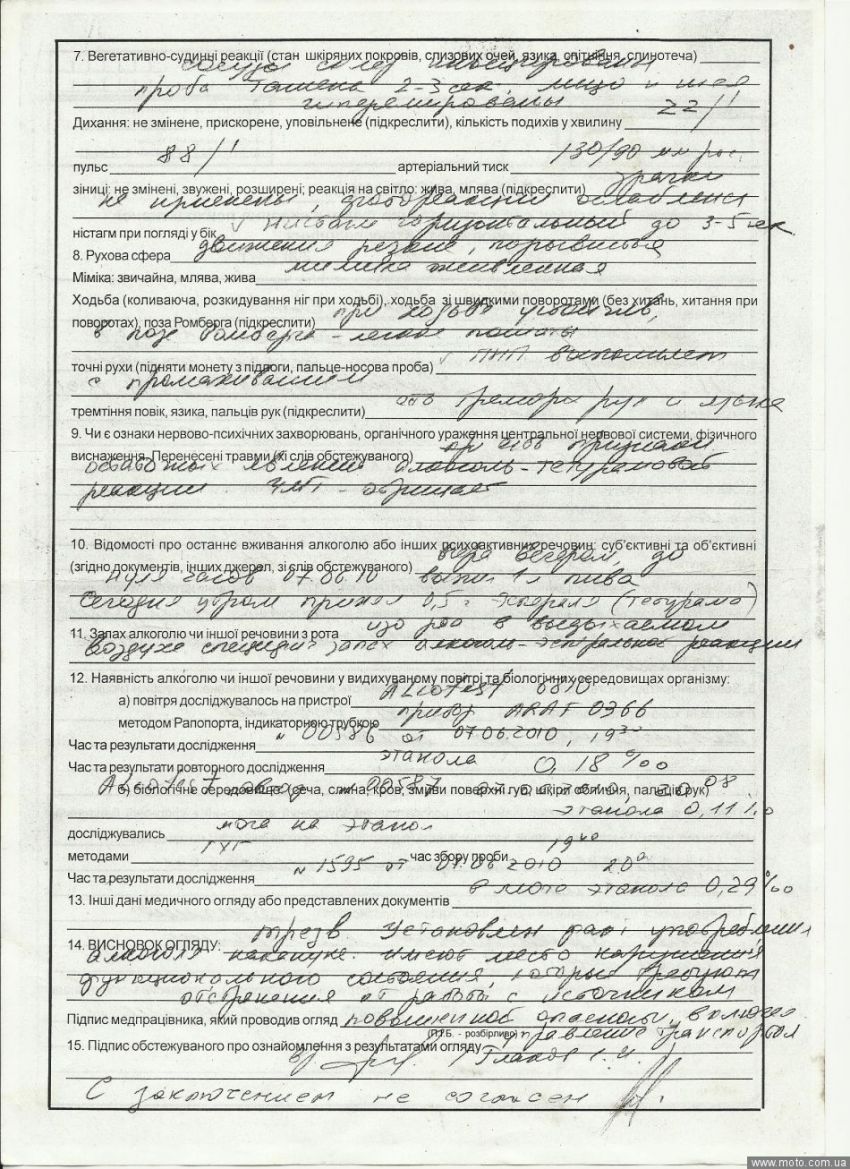 7. Вегетативно-судинні реакції (стан шкіряних покровів, слизових очей, язика, спітніння, слинотеча)
сосуды склер инъецированы
проба Ташена 2-3 сек, лицо и шея
гиперемированы
Дихання: не змінене, прискорене, уповільнене (підкреслити), кількість подихів у хвилину 22/1'
пульс 88/1' артеріальний тиск 130/90 мм рт.
зіниці: не змінені, звужені, розширені; реакція на світло: жива, млява (підкреслити) зрачки
не, фотореакции ослаблены
ністагм при погляді у бік нистагм горизонтальный до 3-5 сек
8. Рухова сфера движения резкие, порывистые
Міміка: звичайна, млява, жива мимика оживленная
Ходьба (коливаюча, розкидування ніг при ходьбі), ходьба зі швидкими поворотами (без хитань, хитання при
поворотах), поза Ромберга (підкреслити) при ходьбе устойчив,
в позе Ромберга - легкое
точні рухи (підняти монету з підлоги, пальце-носова проба) ПНП выполняет
с промахиванием
тремтіння повік, язика, пальців рук (підкреслити) тремора рук и языка
9. Чи є ознаки нервово-психічних захворювань, органічного ураження центральної нервової системи, фізичного
виснаження. Перенесені травми (зі слів обстежуваного) признаки
явлений алкоголь-тетурамовой
реакции. ЧМТ - отрицает
10. Відомості про останнє вживання алкоголю або інших психоактивних речовин: суб'єктивні та об'єктивні
(згідно документів, інших джерел, зі слів обстежуваного) вечером, до
нуля часов 07.06.10 выпил 1 л пива
Сегодня утром принял 0,5 г Эспераля (тетурама)
11. Запах алкоголю чи іншої речовини з рота изо рта в выдыхаемом
воздухе запах алкоголь- реакции
12. Наявність алкоголю чи іншої речовини у видихуваному повітрі та біологічних середовищах організму:
а) повітря досліджувалось на пристрої Alcotest 6810
методом Рапопорта, індикаторною трубкою прибор ARAF 0366
Час та результати дослідження № 00586 от 07.06.2010, 19
Час та результати повторного дослідження этанола 0,18 ‰
Alcotest № 00587 20 08
б) біологічне середовище (сеча, слина, кров, змиви поверхні губ, шкіри обличчя, пальців рук)
этанола 0,11 ‰
досліджувались моча на этанол
методами ГЖХ час збору проби 19 40
Час та результати дослідження № 1595 от 07.06 2010 20
13. Інші дані медичного огляду або представлених документів в моче этанола 0,29 ‰
14. ВИСНОВОК ОГЛЯДУ: трезв. Установлен факт употребления
алкоголя накануне. Имеют место нарушения
функционального состояния, которые требуют
отстранения от работы с источником
Підпис медпрацівника, який проводив огляд повышенной опасности, включая
(П.І.Б. - розбірливо) управление транспортом
15. Підпис обстежуваного про ознайомлення з результатами огляду
С заключением не согласен
www.moto.com.ua